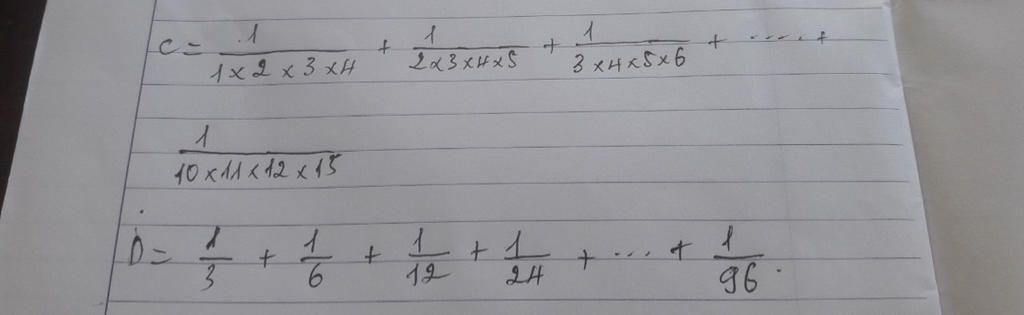 C = 1/(1×2×3×4) + 1/(2×3×4×5) + 1/(3×4×5×6) + ..... +
1/(10×11×12×15)
D = 1/3 + 1/6 + 1/12 + 1/24 + ... + 1/96.